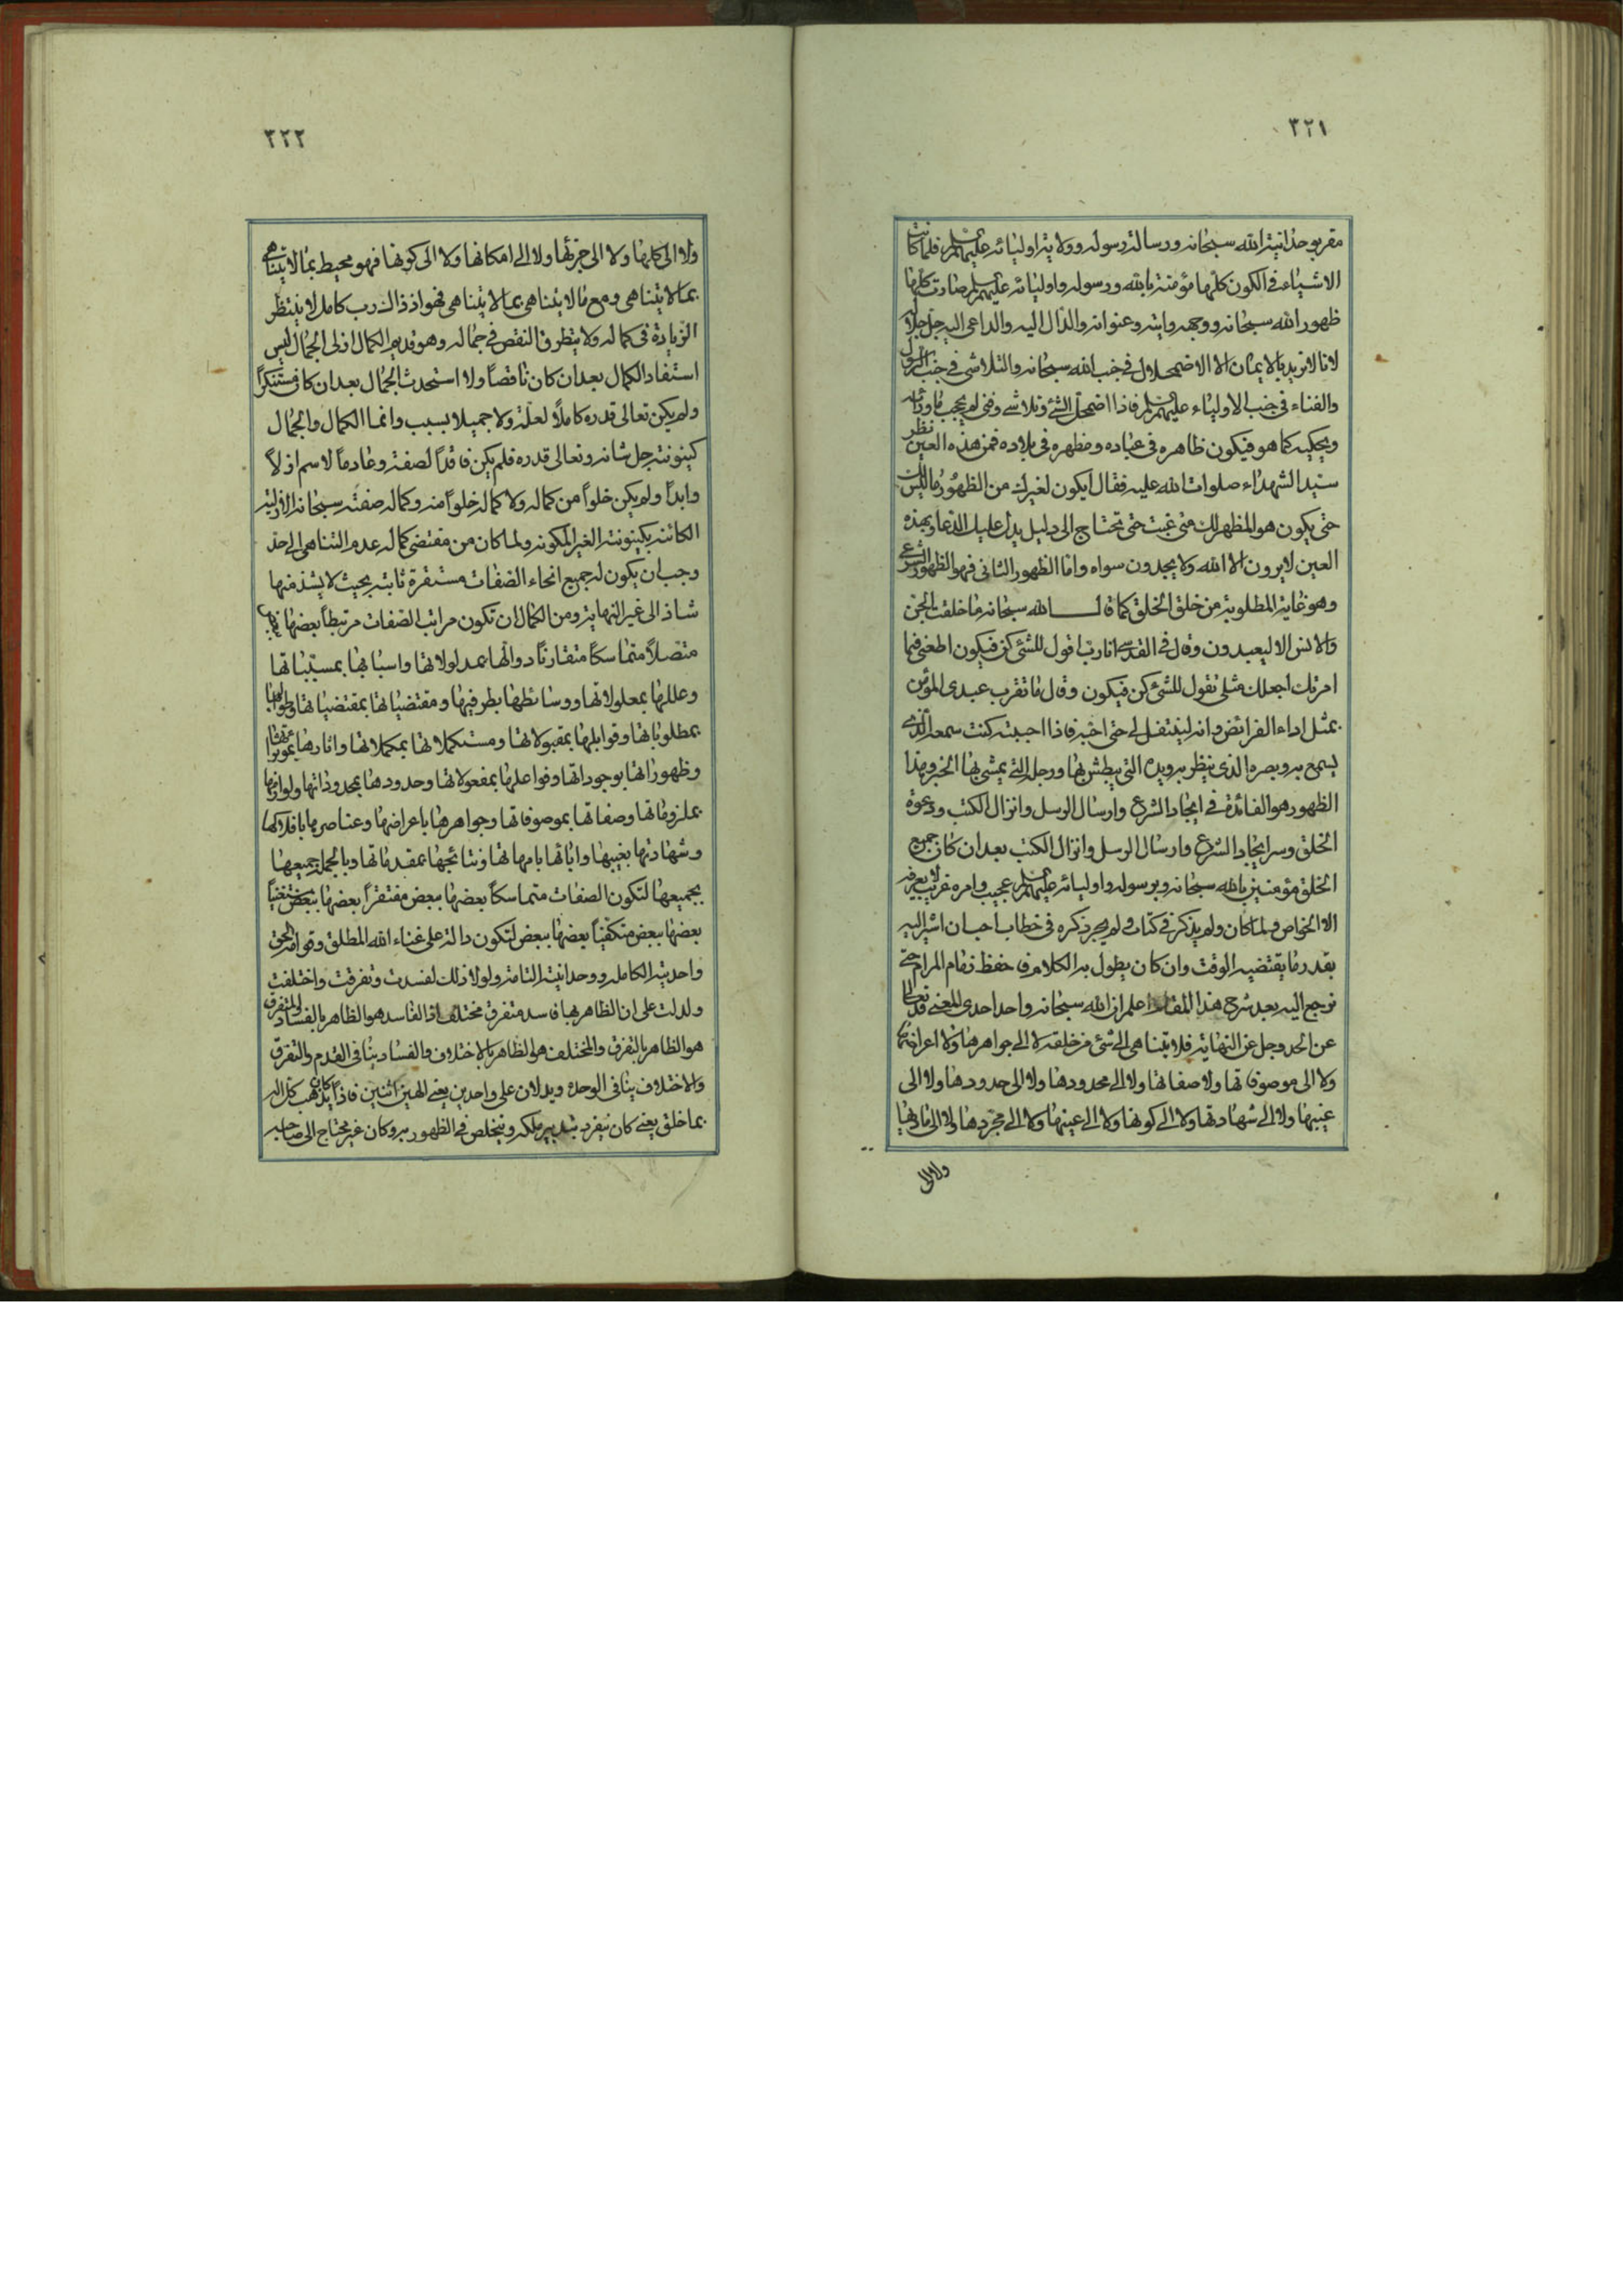 ٣٢١
مقر بوحدانية الله سبحانه ورسالة رسوله وولاية اوليائه عليهم السلم فلما كانت
الاشياء فى الكون كلها مؤمنة بالله ورسوله واوليائه عليهم السلم صارت كلها
ظهور الله سبحانه ووجهه وايته وعنوانه والدال اليه والداعى اليه جل جلاله
لانا لانريد بالايمان الا الاضمحلال فى جنب الله سبحانه والتلاشى فى جنب الرسول
والفناء فى جنب الاولياء عليهم السلم فاذا اضمحل الشئ وتلاشى وفنى لم يحجب ماورائه
ويحكيه كما هو فيكون ظاهره فى عباده ومظهره فى بلاده فمن هذه العين نظر
سيد الشهداء صلوات الله عليه فقال ايكون لغيرك من الظهور ما ليس لك
حتى يكون هو المظهر لك متى غبت حتى تحتاج الى دليل يدل عليك الدعا وبهذه
العين لايرون الا الله ولايجدون سواه واما الظهور الثانى فهو الظهور الشرعى
وهو غاية المطلوبة من خلق الخلق كما قال الله سبحانه ما خلقت الجن
والانس الا ليعبدون وقال فى القدسى انا رب اقول للشئ كن فيكون اطعنى فيما
امرتك اجعلك مثلى تقول للشئ كن فيكون وقال ما تقرب عبدى المؤمن
بمثل اداء الفرائض وانه ليتنفل لى حتى احبه فاذا احببته كنت سمعه الذى
يسمع به وبصره الذى ينظر به ويده التى يبطش بها ورجله التى يمشى بها الخبر وهذا
الظهور هو الفائدة فى ايجاد الشرع وارسال الرسل وانزال الكتب ودعوة
الخلق وسر ايجاد الشرع وارسال الرسل وانزال الكتب بعد ان كان جميع
الخلق مؤمنين بالله سبحانه وبرسوله واوليائه عليهم السلم عجيب وامره غريب لايعرفه
الا الخواص ولما كان ولم يذكر فى كتاب ولم يجر ذكره فى خطاب احب ان اشير اليه
بقدر ما يقتضيه الوقت وان كان يطول به الكلام فى حفظ زمام المرام حتى
نرجع اليه بعد شرح هذا المقام اعلم ان الله سبحانه واحد احدى المعنى قد تعالى
عن الحد وجل عن النهاية فلا يتناهى الى شئ من خلقه لا الى جواهرها ولا اعراضها
ولا الى موصوفاتها ولا صفاتها ولا الى محدودها ولا الى حدودها ولا الى
غيبها ولا الى شهادتها ولا الى كونها ولا الى عينها ولا الى مجردها ولا الى مادتها
ولا الى
٣٢٢
ولا الى كلها ولا الى جزئها ولا الى امكانها ولا الى كونها فهو محيط بما لايتناهى
بما لايتناهى ومع ما لايتناهى بما لايتناهى فهو اذ ذاك رب كامل لا ينتظر
الزيادة فى كماله ولا ينظر فى النقص فى جماله وهو قديم الكمال ازلى الجمال ليس
استفاد الكمال بعد ان كان ناقصاً ولا استحدث الجمال بعد ان كان مستنكراً
ولم يكن تعالى قدره كاملاً لعلة ولا جميلا بسبب وانما الكمال والجمال
كينونته جل شانه وتعالى قدره فلم يكن فاقداً لصفة وعادماً لاسم ازلاً
وابداً ولم يكن خلواً من كماله ولا كماله خلواً منه وكماله صفته سبحانه الازلية
الكائنة بكينونته الغير المكونه ولما كان من مقتضى كماله عدم التناهى الى حد
وجب ان يكون له جميع انحاء الصفات مستقرة ثابته بحيث لايشذ منها
شاذ الى غير النهاية ومن الكمال ان تكون مراتب الصفات مرتبطاً بعضها ببعض
متصلاً متماسكاً متقارناً دوالها بمدلولاتها واسبابها بمسبباتها
وعللها بمعلولاتها ووسائطها بطرفيها ومقتضياتها بمقتضياتها وطوالبها
بمطلوباتها وقوابلها بمقبولاتها ومستكملاتها بمكملاتها واثارها بمؤثراتها
وظهوراتها بوجوداتها وفواعلها بمفعولاتها وحدودها بمحدوداتها ولوازمها
بملزوماتها وصفاتها بموصوفاتها وجواهرها باعراضها وعناصرها بافلاكها
وشهادتها بغيبها واباتها بامهاتها ونتائجها بمقدماتها وبالجملة جميعها
بجميعها لتكون الصفات متماسكاً بعضها ببعض مفتقراً بعضها ببعض مستغنياً
بعضها ببعض متكفياً بعضها ببعض لتكون دالة على غناء الله المطلق وقوامه الحق
واحديته الكاملة ووحدانيته التامة ولولا ذلك لفسدت وتفرقت واختلفت
ولدلت على ان الظاهر بها فاسد متفرق مختلف اذ الفاسد هو الظاهر بالفساد والمتفرق
هو الظاهر بالتفرق والمختلف هو الظاهر بالاختلاف والفساد ينافى القدم والتفرق
والاختلاف ينافى الوحدة ويدلان على واحدين يعنى الهين اثنين فاذاً كان يذهب كل اله
بما خلق يعنى كان يتفرد بتدبير ملكه ويتخلص فى الظهور به وكان غير محتاج الى صاحبه